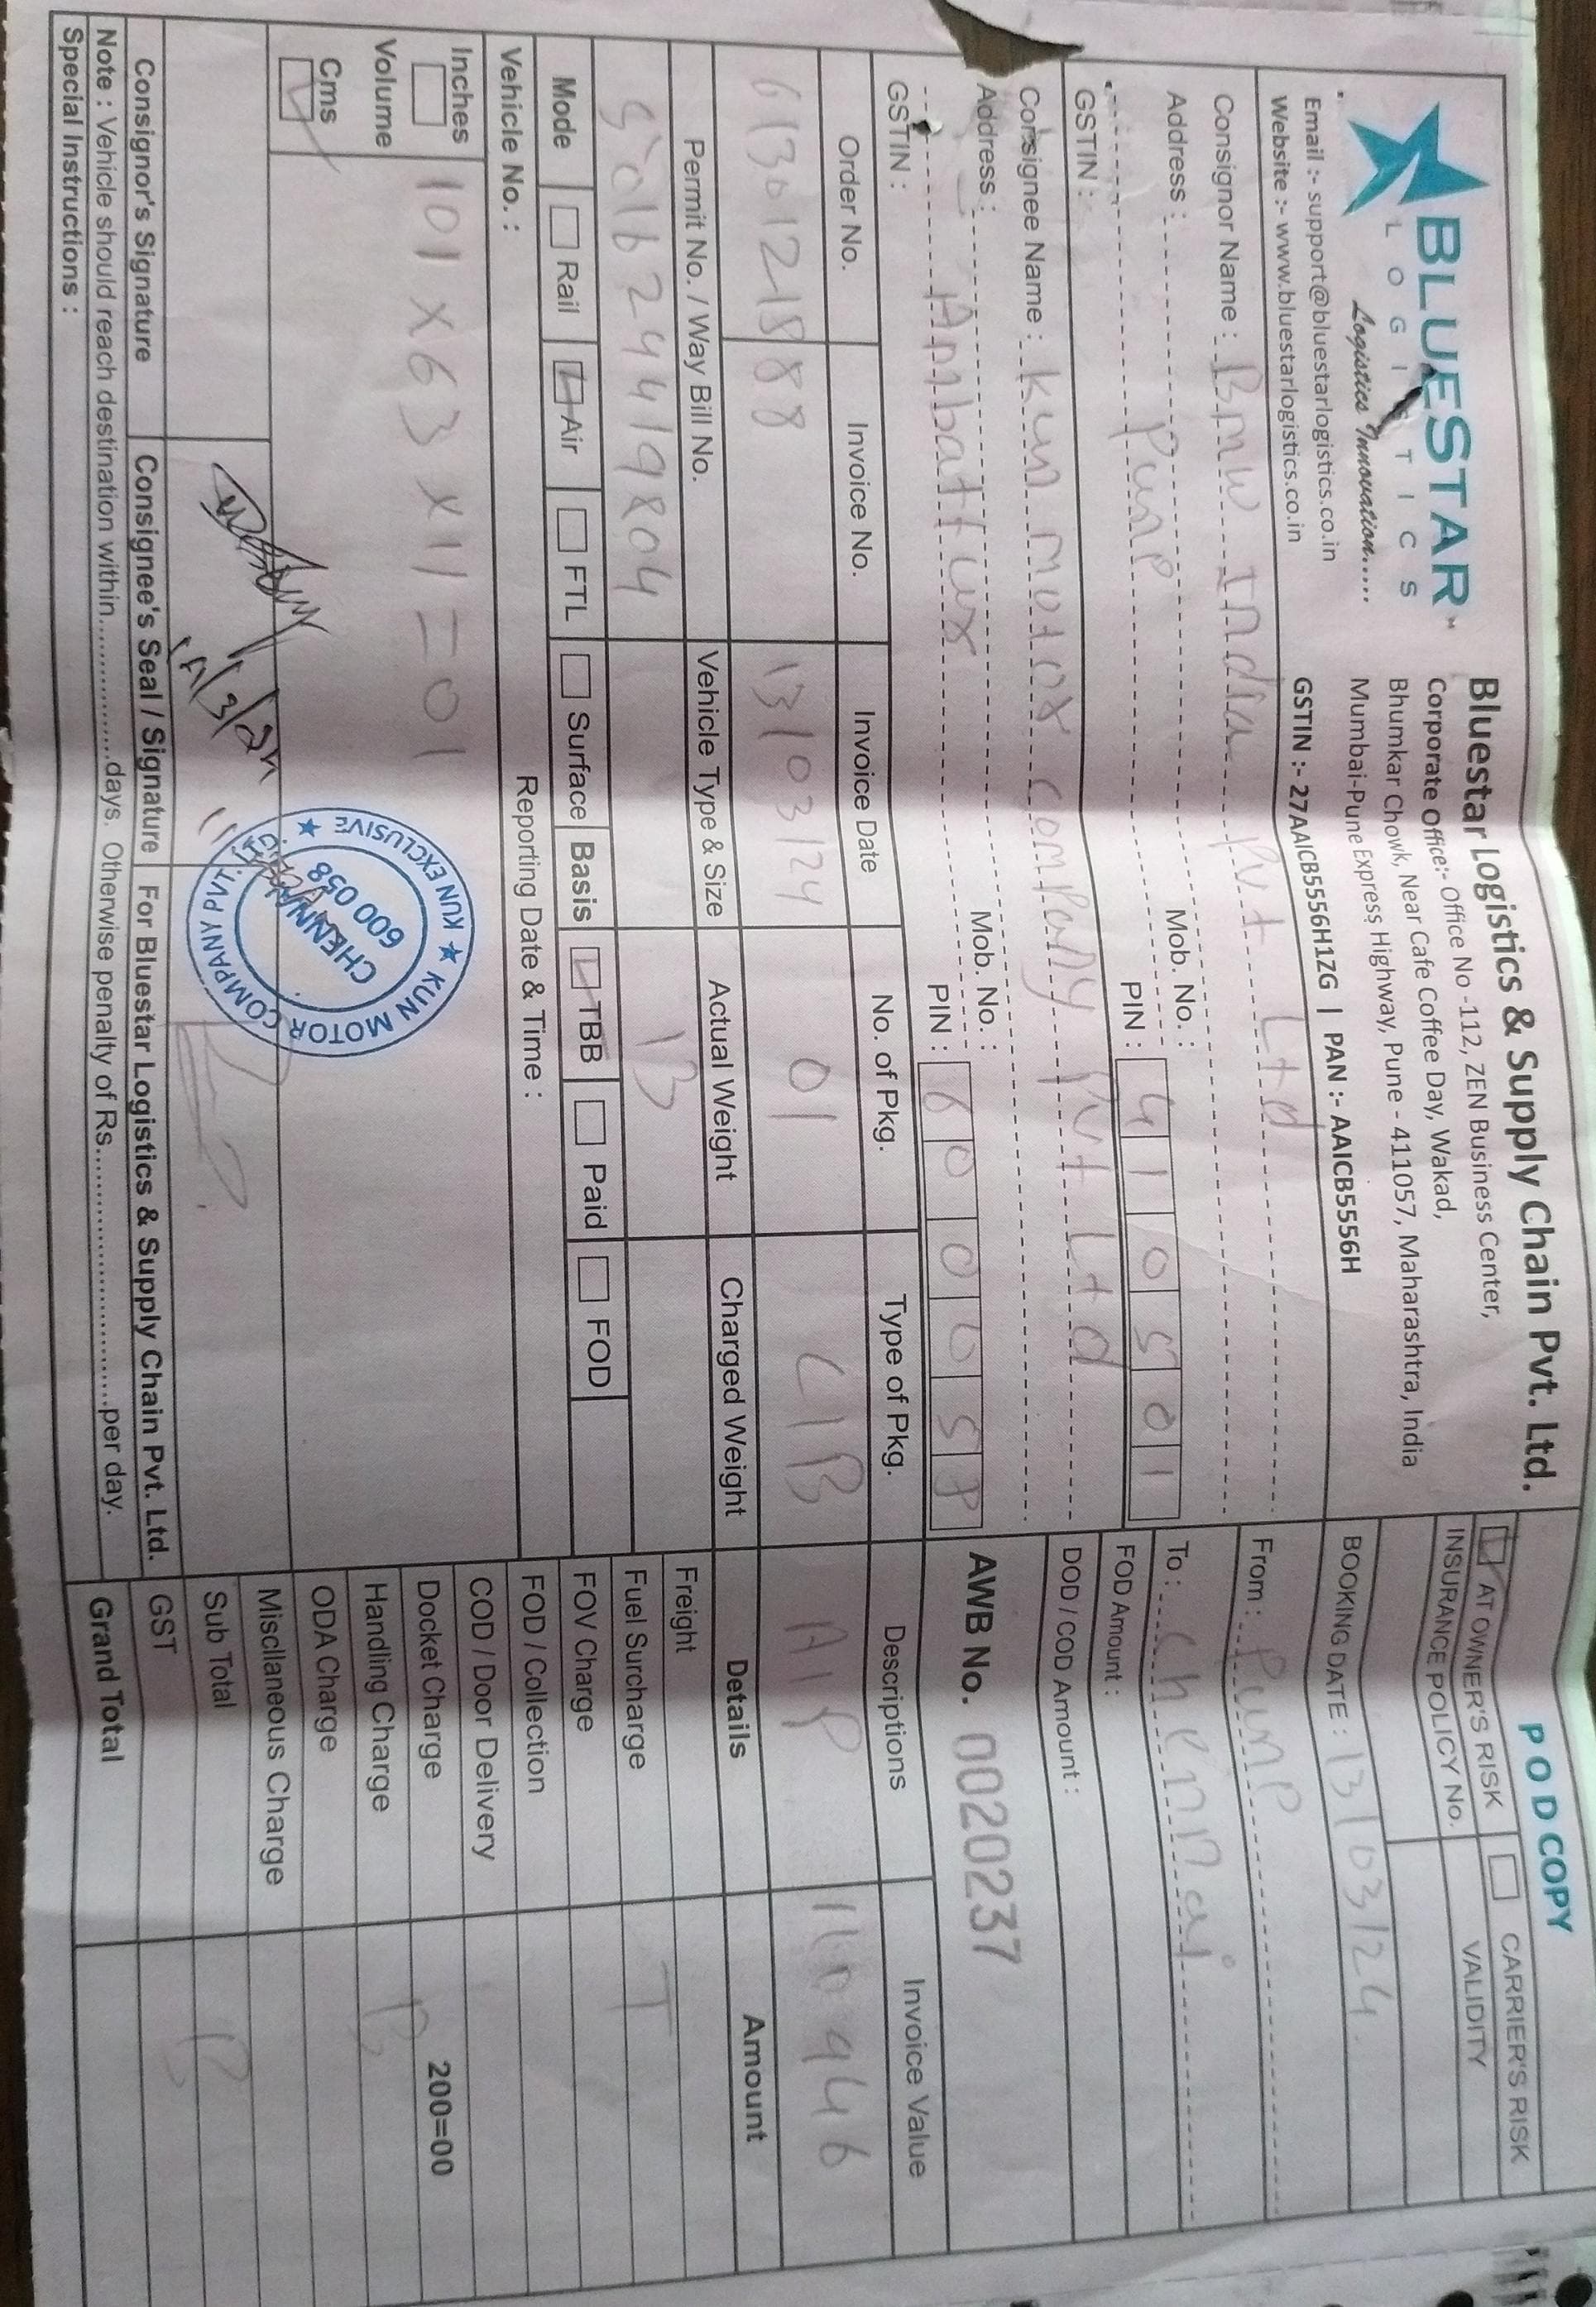 BLUESTAR
LOGISTICS
Logistics Innovation.....
Email :- support@bluestarlogistics.co.in
Website :- www.bluestarlogistics.co.in
Bluestar Logistics & Supply Chain Pvt. Ltd.
Corporate Office:- Office No -112, ZEN Business Center,
Bhumkar Chowk, Near Cafe Coffee Day, Wakad,
Mumbai-Pune Express Highway, Pune - 411057, Maharashtra, India
GSTIN :- 27AAICB5556H1ZG | PAN :- AAICB5556H
POD COPY
AT OWNER'S RISK CARRIER'S RISK
INSURANCE POLICY No. VALIDITY
BOOKING DATE : 13/03/24
From : Pune
To : Chennai
FOD Amount :
DOD / COD Amount :
AWB No. 0020237
Consignor Name : Bmw India Pvt Ltd
Address : Mob. No. :
Pune PIN : 410501
GSTIN :
Consignee Name : Kun motor company Pvt Ltd
Address : Mob. No. :
Ambattur PIN : 600058
GSTIN :
Order No. Invoice No. Invoice Date No. of Pkg. Type of Pkg. Descriptions Invoice Value
6130121888 13/03/24 01 C/B A/P 110946
Permit No. / Way Bill No. Vehicle Type & Size Actual Weight Charged Weight Details Amount
501624419804 13
Freight
Fuel Surcharge T
FOV Charge
FOD / Collection
COD / Door Delivery
Docket Charge 200=00
Handling Charge B
ODA Charge
Miscllaneous Charge
Sub Total B
GST
Grand Total
Mode Rail Air FTL Surface Basis TBB Paid FOD
Vehicle No. : Reporting Date & Time :
Inches
Volume
Cms
101 x 63 x 11 = 01
KUN MOTOR COMPANY PVT. LTD.
KUN EXCLUSIVE
CHENNAI
600 058
14/3/24
Consignor's Signature Consignee's Seal / Signature For Bluestar Logistics & Supply Chain Pvt. Ltd.
Note : Vehicle should reach destination within.................days. Otherwise penalty of Rs...............................per day.
Special Instructions :